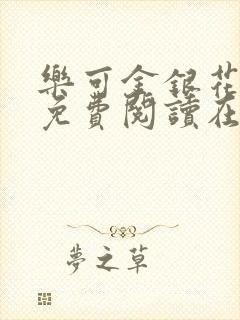 樂可金銀花
免費閱讀在
夢之草